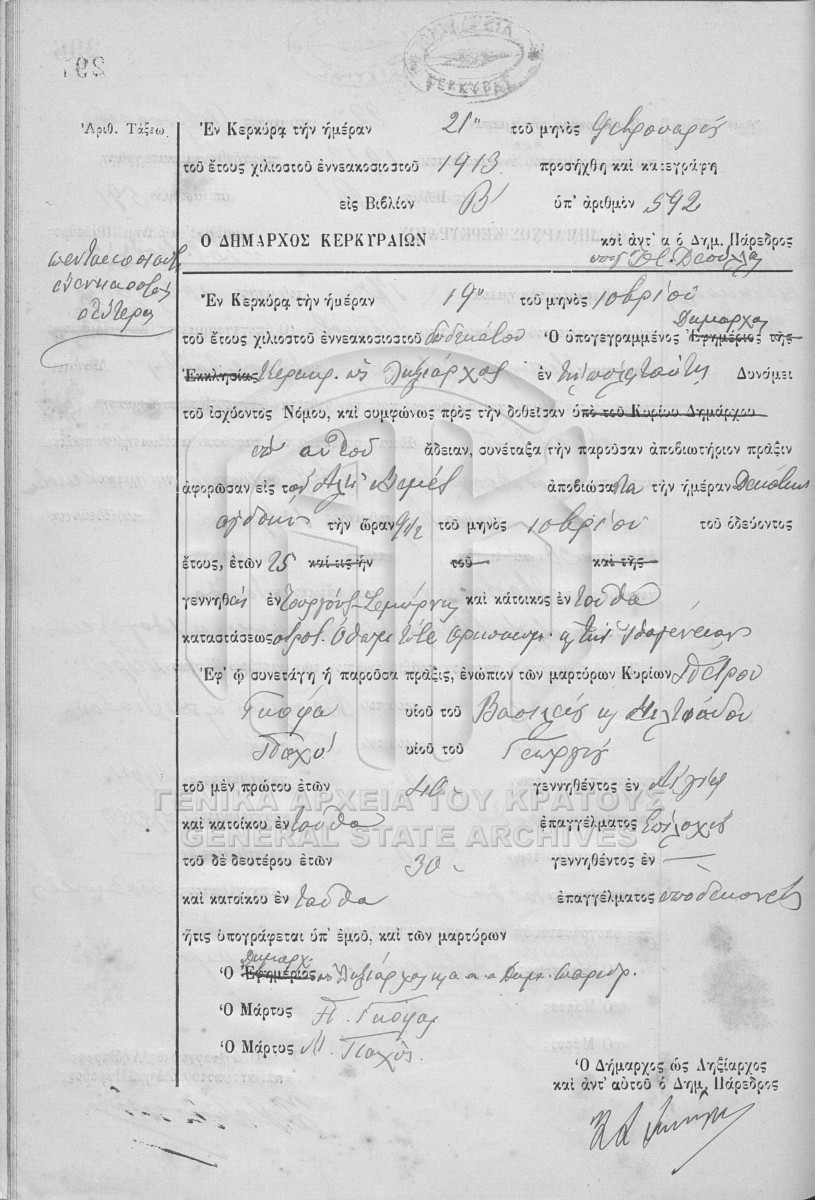 ΔΗΜΑΡΧΙΑ
ΚΕΡΚΥΡΑΣ
Ἀριθ. Τάξεω
Ἐν Κερκύρᾳ τὴν ἡμέραν 21η τοῦ μηνὸς Φεβρουαρίου
τοῦ ἔτους χιλιοστοῦ ἐννεακοσιοστοῦ 1913 προσήχθη καὶ κατεγράφη
εἰς Βιβλίον Β′ ὑπ' ἀριθμὸν 592
Ὁ ΔΗΜΑΡΧΟΣ ΚΕΡΚΥΡΑΙΩΝ καὶ ἀντ' α ὁ Δημ. Πάρεδρος
πεντακοσιοστὸς
ἐνενηκοστὸς
δεύτερος
Ἐν Κερκύρᾳ τὴν ἡμέραν 19η τοῦ μηνὸς 10βρίου
τοῦ ἔτους χιλιοστοῦ ἐννεακοσιοστοῦ δωδεκάτου Ὁ ὑπογεγραμμένος Δήμαρχος Ἐφημέριος τῆς
Ἐκκλησίας Κερκυρ. ὡς Ληξίαρχος ἐν Δυνάμει
τοῦ ἰσχύοντος Νόμου, καὶ συμφώνως πρὸς τὴν δοθεῖσαν ὑπὸ τοῦ Κυρίου Δημάρχου
αὐτοῦ ἄδειαν, συνέταξα τὴν παροῦσαν ἀποβιωτήριον πρᾶξιν
ἀφορῶσαν εἰς τὸν Ἀλῆ ἀποβιώσαντα τὴν ἡμέραν Δεκάτην
ὀγδόην τὴν ὥραν 9 1/2 τοῦ μηνὸς 10βρίου τοῦ ὁδεύοντος
ἔτους, ἐτῶν 25 καί τις ἦν τοῦ καὶ τῆς
γεννηθεὶς ἐν Σμύρνης καὶ κάτοικος ἐνταῦθα
καταστάσεως
Ἐφ' ᾧ συνετάγη ἡ παροῦσα πρᾶξις, ἐνώπιον τῶν μαρτύρων Κυρίων Πέτρου
Γκόφα υἱοῦ τοῦ Βασιλείου κ. Μιλτιάδου
Παχύ υἱοῦ τοῦ Γεωργίου
τοῦ μὲν πρώτου ἐτῶν 40 - γεννηθέντος ἐν
καὶ κατοίκου ἐνταῦθα ἐπαγγέλματος Ἐπίλοχος
τοῦ δὲ δευτέρου ἐτῶν 30 - γεννηθέντος ἐν —
καὶ κατοίκου ἐνταῦθα ἐπαγγέλματος ὑποδεκανεύς
ἥτις ὑπογράφεται ὑπ' ἐμοῦ, καὶ τῶν μαρτύρων
Ὁ Δήμαρχ. Ἐφημέριος ὡς Ληξίαρχος κ. α. α. ὁ Δημ. παρεδρ.
Ὁ Μάρτυς Π. Γκόφας
Ὁ Μάρτυς Μ. Παχύς
Ὁ Δήμαρχος ὡς Ληξίαρχος
καὶ ἀντ' αὐτοῦ ὁ Δημ. Πάρεδρος
ΓΕΝΙΚΑ ΑΡΧΕΙΑ ΤΟΥ ΚΡΑΤΟΥΣ
GENERAL STATE ARCHIVES